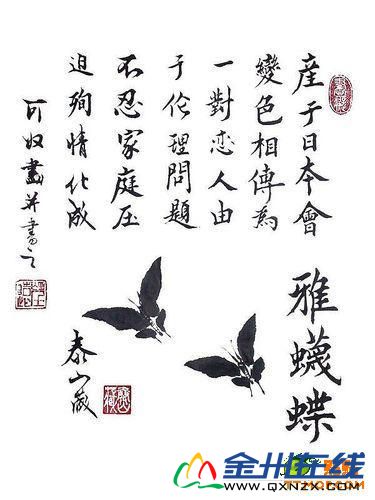 雅蠛蝶
産于日本會
變色相傳為
一對戀人由
于伦理問題
不忍家庭压
迫殉情化成
可奴畫并書之
泰山藏
金州在线
WWW.QXNZX.COM